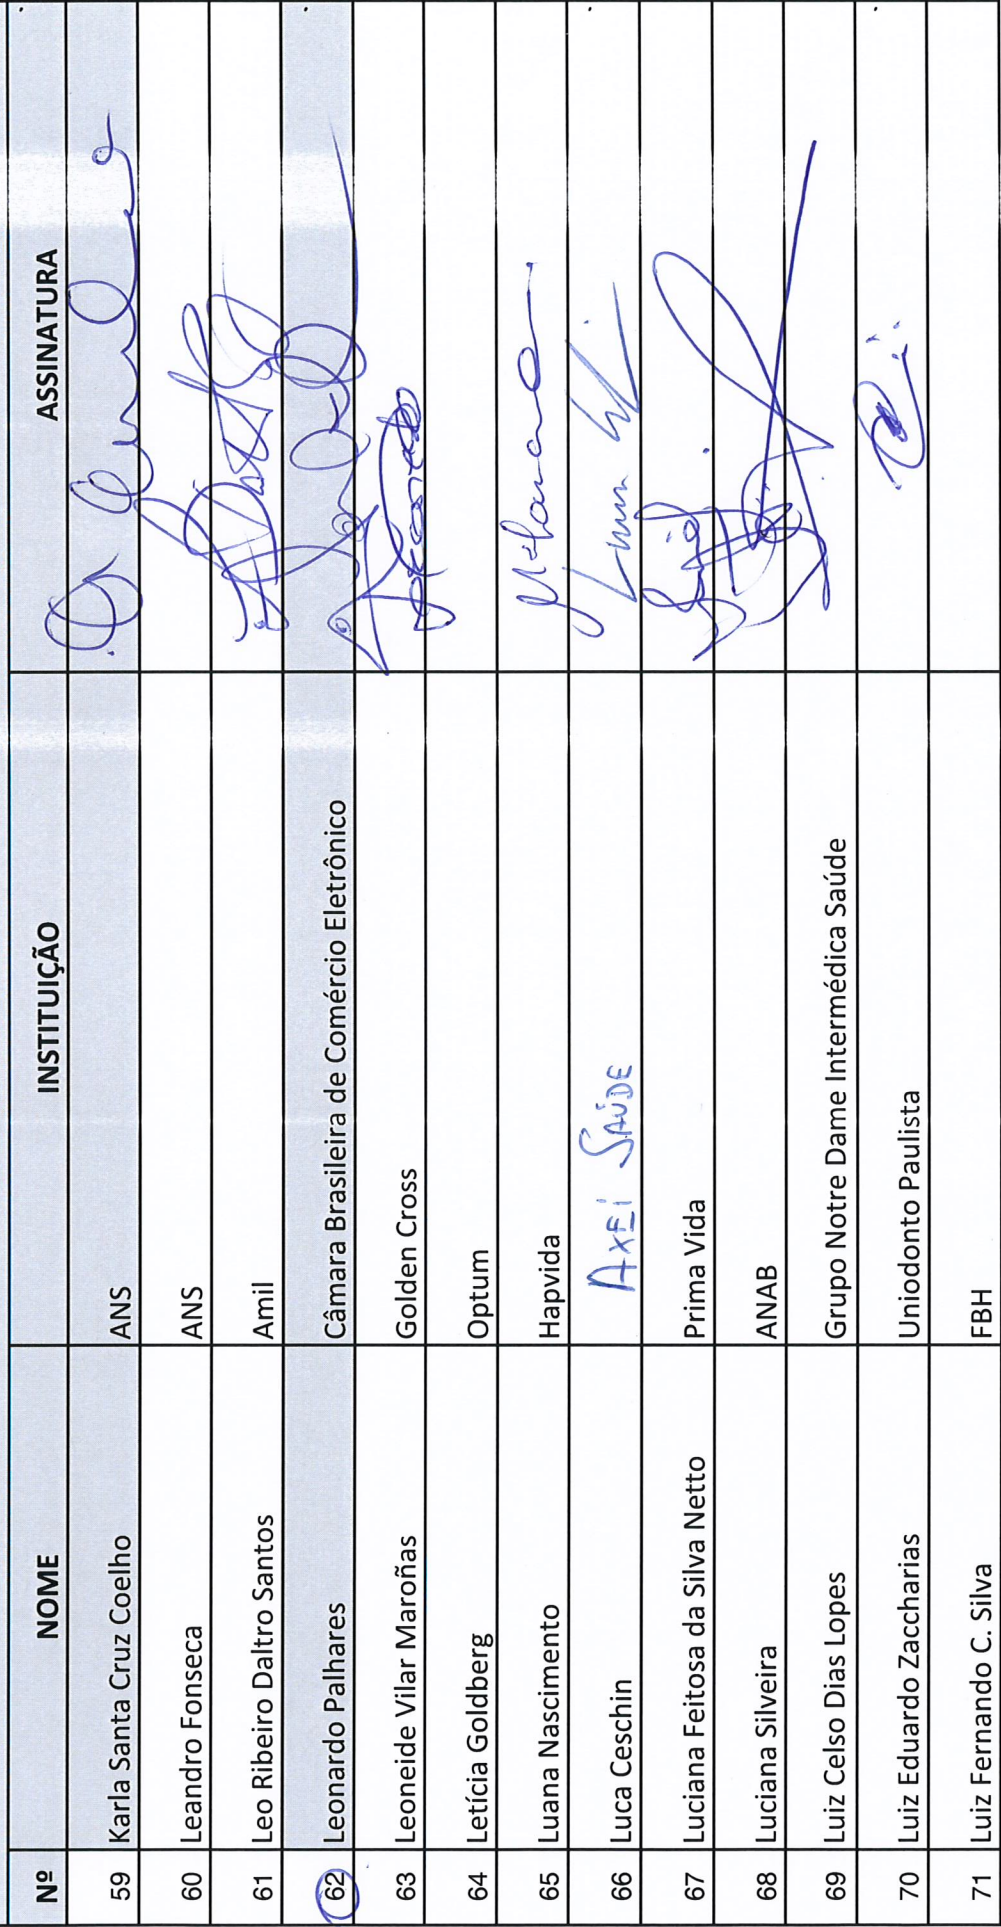 Nº NOME INSTITUIÇÃO ASSINATURA
59 Karla Santa Cruz Coelho ANS
60 Leandro Fonseca ANS
61 Leo Ribeiro Daltro Santos Amil
62 Leonardo Palhares Câmara Brasileira de Comércio Eletrônico
63 Leoneide Vilar Maroñas Golden Cross
64 Letícia Goldberg Optum
65 Luana Nascimento Hapvida
66 Luca Ceschin AXEI SAÚDE
67 Luciana Feitosa da Silva Netto Prima Vida
68 Luciana Silveira ANAB
69 Luiz Celso Dias Lopes Grupo Notre Dame Intermédica Saúde
70 Luiz Eduardo Zaccharias Uniodonto Paulista
71 Luiz Fernando C. Silva FBH